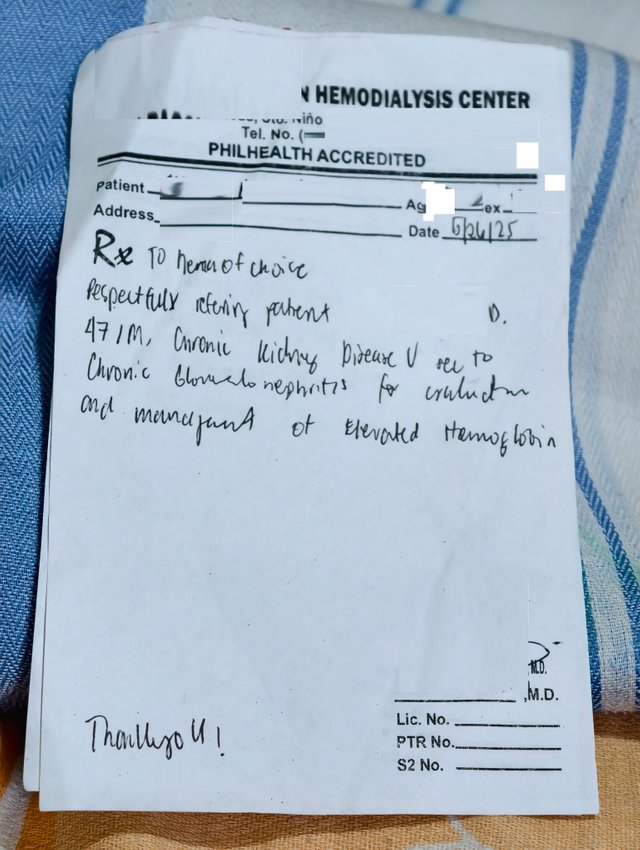 N HEMODIALYSIS CENTER
Sto. Niño
Tel. No. (
PHILHEALTH ACCREDITED
Patient
Ag ex.
Address
Date 5/26/25
Rx To Hema of choice
Respectfully refering patient D.
47/M, Chronic Kidney Disease V sec to
Chronic Glomerulonephritis for evaluation
and management of Elevated Hemoglobin
M.D.
,M.D.
Thank you!
Lic. No.
PTR No.
S2 No.